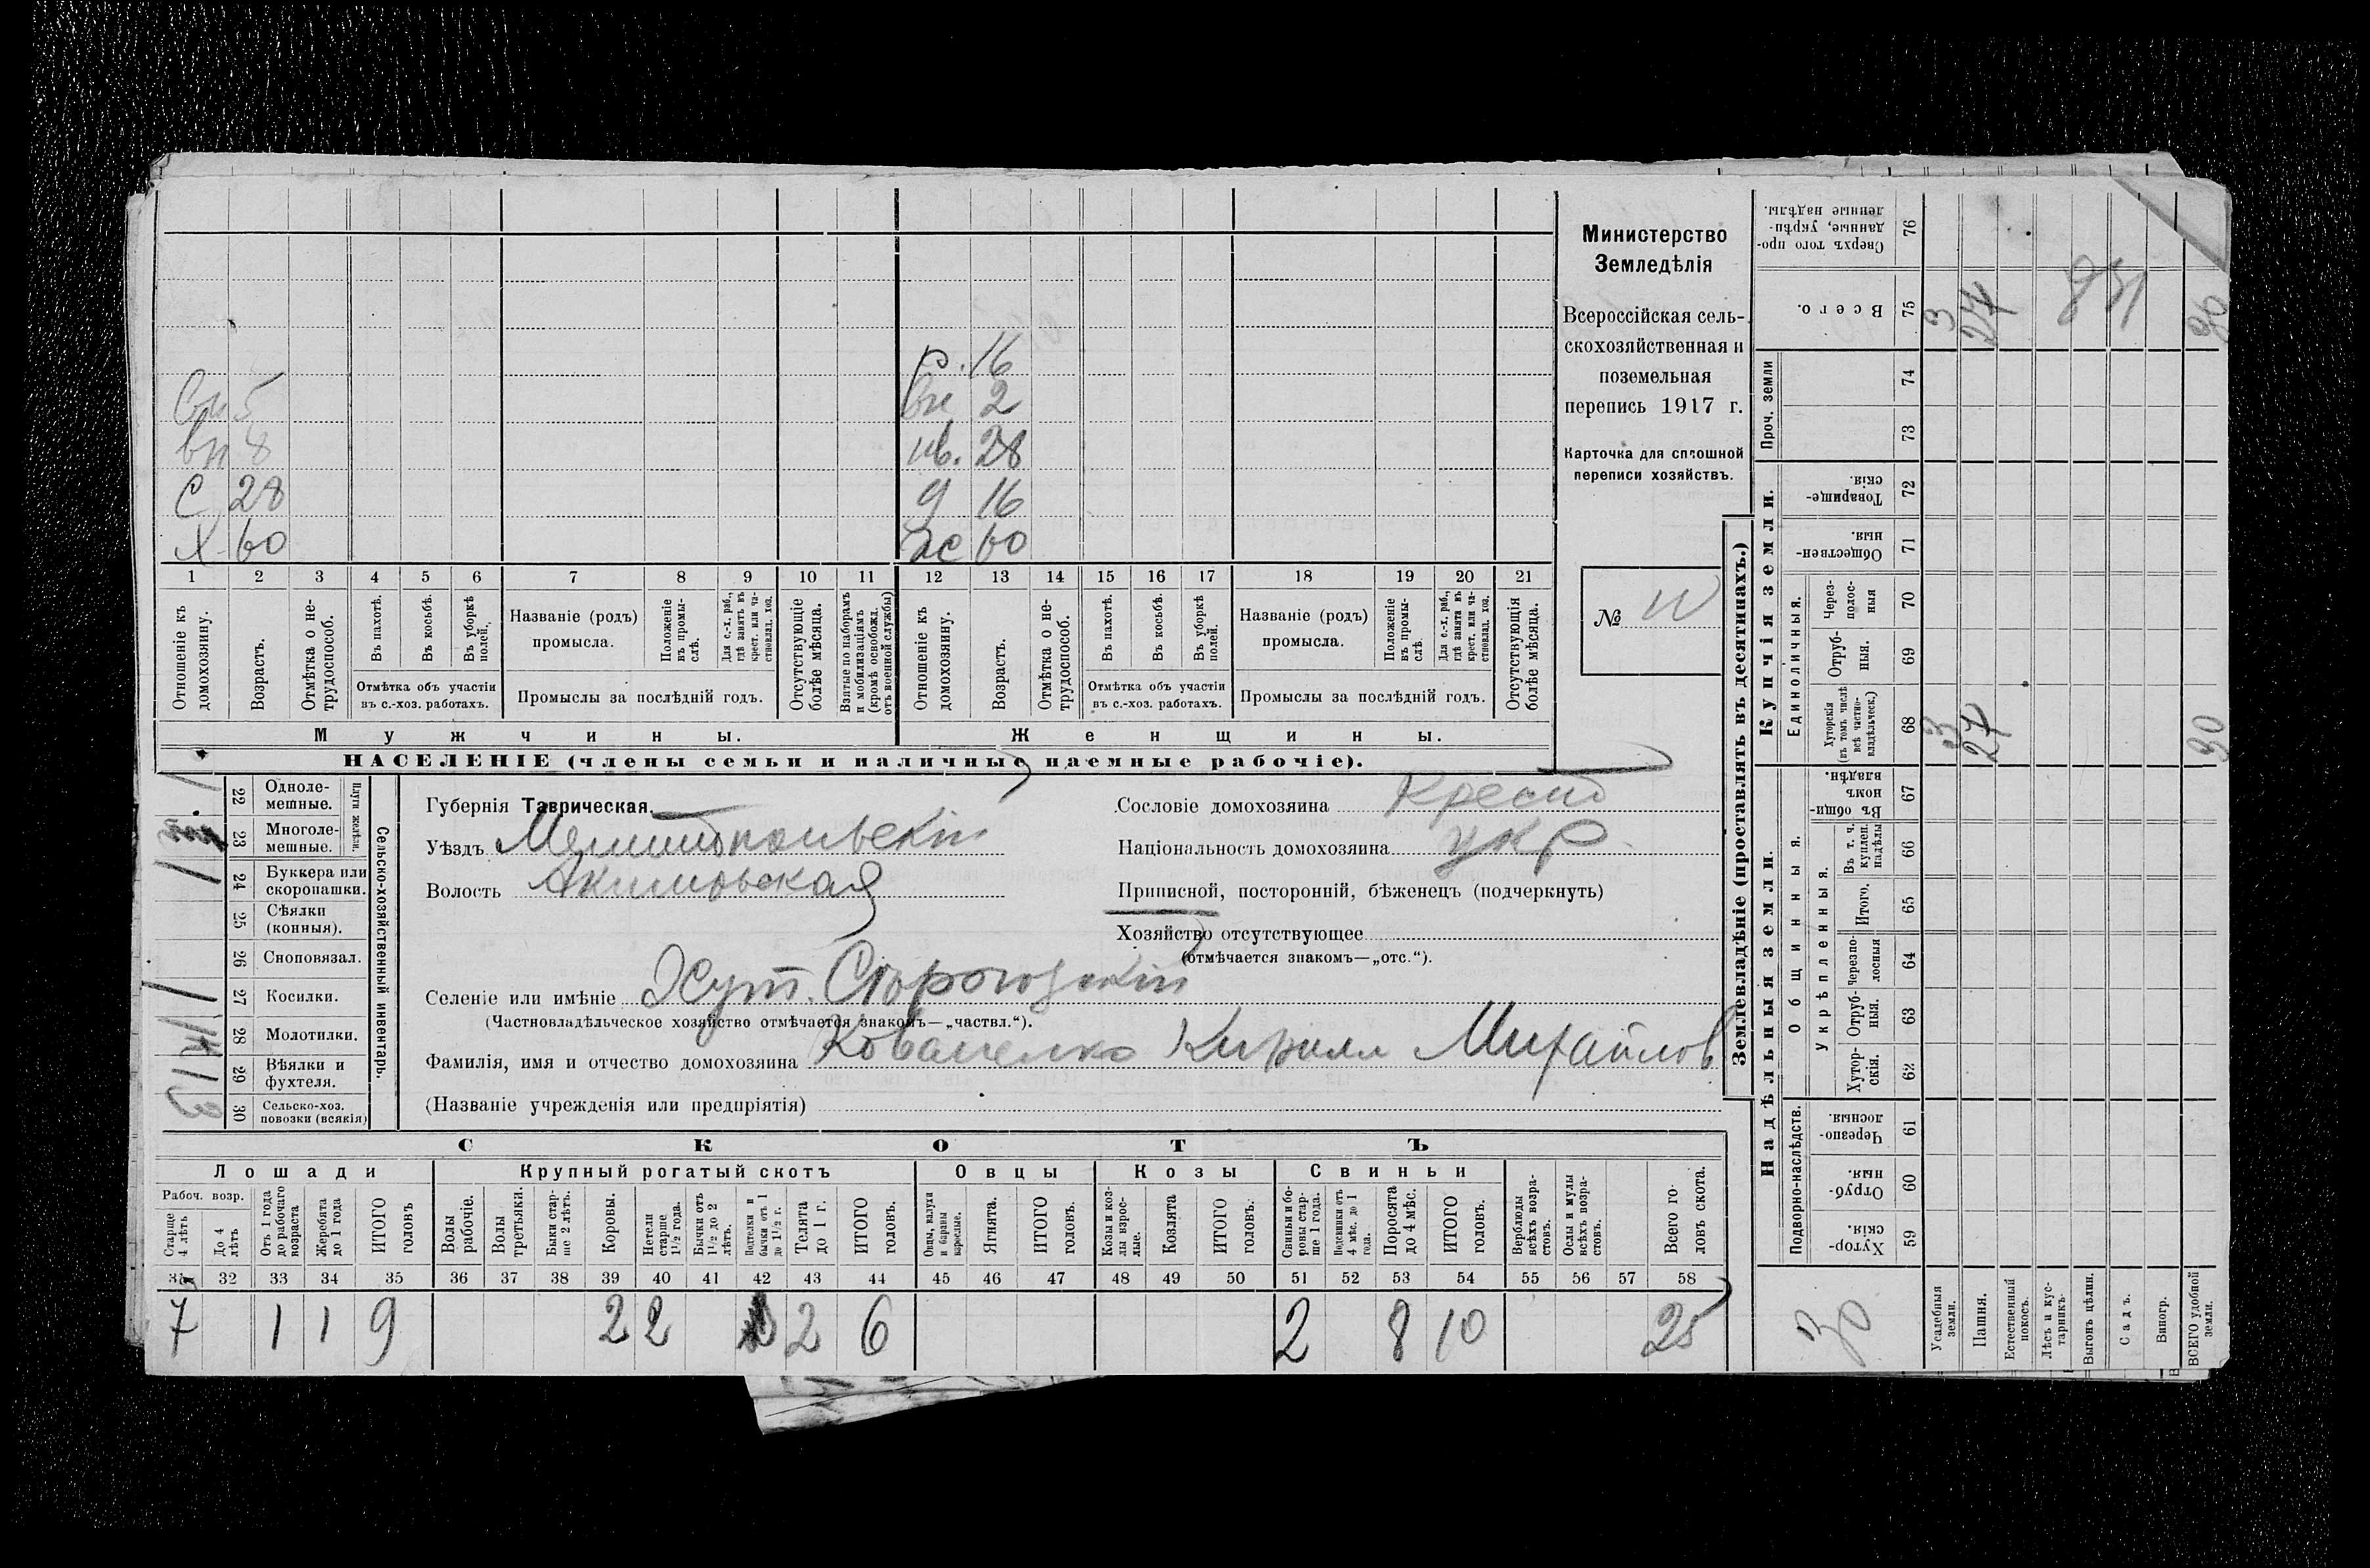 р. 16
вн 5 вн 2
вн 8 нв. 28
С 28 д 16
Х 60 ж 60
1 2 3 4 5 6 7 8 9 10 11 12 13 14 15 16 17 18 19 20 21
Отношеніе къ домохозяину.
Возрастъ.
Отмѣтка о не-
трудоспособ.
Въ пахотѣ.
Въ косьбѣ.
Въ уборкѣ
полей.
Отмѣтка объ участіи
въ с.-хоз. работахъ.
Названіе (родъ)
промысла.
Положеніе
въ промы-
слѣ.
Для с.-х. раб.,
гдѣ занятъ въ
крест. или ча-
стновлад. хоз.
Промыслы за послѣдній годъ.
Отсутствующіе
болѣе мѣсяца.
Взятые по наборамъ
и мобилизаціямъ
(кромѣ освобожд.
отъ военной службы)
Отношеніе къ
домохозяину.
Возрастъ.
Отмѣтка о не-
трудоспособ.
Въ пахотѣ.
Въ косьбѣ.
Въ уборкѣ
полей.
Отмѣтка объ участіи
въ с.-хоз. работахъ.
Названіе (родъ)
промысла.
Положеніе
въ промы-
слѣ.
Для с.-х. раб.,
гдѣ занята въ
крест. или ча-
стновлад. хоз.
Промыслы за послѣдній годъ.
Отсутствующія
болѣе мѣсяца.
Мужчины. Женщины.
НАСЕЛЕНІЕ (члены семьи и наличные наемные рабочіе).
Министерство
Земледѣлія
Всероссійская сель-
скохозяйственная и
поземельная
перепись 1917 г.
Карточка для сплошной
переписи хозяйствъ.
№
22 Одноле-
мешные.
23 Многоле-
мешные.
Плуги желѣзн.
24 Буккера или
скоропашки.
25 Сѣялки
(конныя).
26 Сноповязал.
27 Косилки.
28 Молотилки.
29 Вѣялки и
фухтеля.
30 Сельско-хоз.
повозки (всякія)
Сельско-хозяйственный инвентарь.
Губернія Таврическая.
Уѣздъ Мелитопольскій
Волость Акимовская
Сословіе домохозяина Крест
Національность домохозяина укр.
Приписной, посторонній, бѣженецъ (подчеркнуть)
Хозяйство отсутствующее
(отмѣчается знакомъ—„отс.“).
Селеніе или имѣніе Хут.
(Частновладѣльческое хозяйство отмѣчается знакомъ—„частвл.“).
Фамилія, имя и отчество домохозяина Коваленко Кирилл Михайлов
(Названіе учрежденія или предпріятія)
СКОТЪ
Лошади Крупный рогатый скотъ Овцы Козы Свиньи
Рабоч. возр.
Старше
4 лѣтъ
До 4
лѣтъ
Отъ 1 года
до рабочаго
возраста
Жеребята
до 1 года
ИТОГО
головъ
Волы
рабочіе.
Волы
третьяки.
Быки стар-
ше 2 лѣтъ.
Коровы.
Нетели
старше
1½ года.
Бычки отъ
1½ до 2
лѣтъ.
Подтелки и
бычки отъ 1
до 1½ г.
Телята
до 1 г.
ИТОГО
головъ.
Овцы, валухи
и бараны
взрослые.
Ягнята.
ИТОГО
головъ.
Козы и коз-
лы взрос-
лые.
Козлята
ИТОГО
головъ.
Свиньи и бо-
ровы стар-
ше 1 года.
Подсвинки отъ
4 мѣс. до 1
года.
Поросята
до 4 мѣс.
ИТОГО
головъ.
Верблюды
всѣхъ возра-
стовъ.
Ослы и мулы
всѣхъ возра-
стовъ.
Всего го-
ловъ скота.
31 32 33 34 35 36 37 38 39 40 41 42 43 44 45 46 47 48 49 50 51 52 53 54 55 56 57 58
7 1 1 9 2 2 2 6 2 8 10 25
Землевладѣніе (проставлять въ десятинахъ.)
Купчія земли.
Надѣльныя земли.
Сверхъ того про-
данные, укрѣп-
ленные надѣлы.
76
Всего.
75
3
27
30
Проч. земли
74
73
Товарище-
скія.
72
Обществен-
ныя.
71
Единоличныя.
Через-
полос-
ныя
70
Отруб-
ныя.
69
Хуторскія
(въ томъ числѣ
всѣ частно-
владѣльческ.)
68
3
27
30
Общинныя.
Въ общи-
номъ
владѣн.
67
Укрѣпленныя.
Въ т. ч.
куплен.
надѣлы
66
Итого.
65
Черезпо-
лосныя
64
Отруб-
ныя.
63
Хутор-
скія.
62
Подворно-наслѣдств.
Черезпо-
лосныя.
61
Отруб-
ныя.
60
Хутор-
скія.
59
30
Усадебныя
земли.
Пашня.
Естественный
покосъ.
Лѣсъ и кус-
тарникъ.
Выгонъ цѣлин.
Садъ.
Виногр.
ВСЕГО удобной
земли.